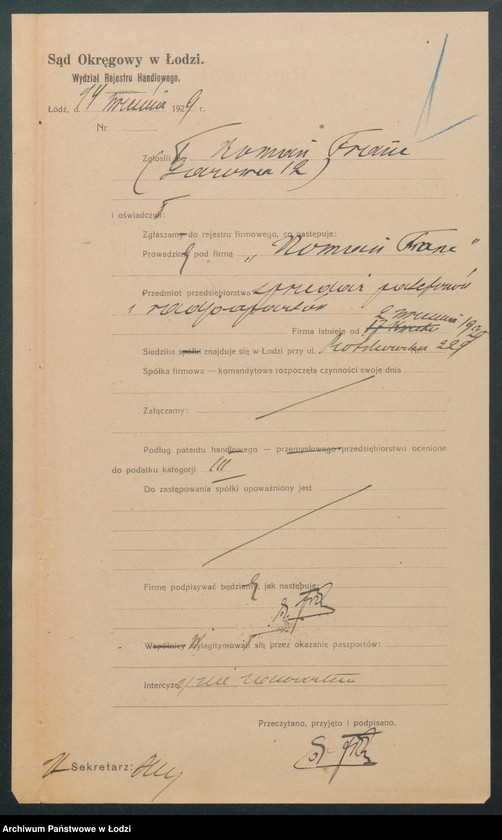 Sąd Okręgowy w Łodzi.
Wydział Rejestru Handlowego.
Łódź, d. 14 września 1929 r.
Nr.
Zgłosił się Roman Franc
(Żarowa 12)
i oświadczył
Zgłaszamy do rejestru firmowego, co następuje:
Prowadzimy pod firmą „Roman Franc"
Przedmiot przedsiębiorstwa sprzedaż patefonów
i radjoaparatów
2 wrzesień 1929
Firma istnieje od 17
Siedziba spółki znajduje się w Łodzi przy ul. 229
Spółka firmowa — komandytowa rozpoczęła czynności swoje dnia
Załączamy:
Podług patentu handlowego — przemysłowego przedsiębiorstwo ocenione
do podatku kategorji III
Do zastępowania spółki upoważniony jest
Firmę podpisywać będzie jak następuje:
Wspólnicy Wylegitymował się przez okazanie paszportów:
Intercyzy nie zawarłem
Przeczytano, przyjęto i podpisano.
Sekretarz:
Archiwum Państwowe w Łodzi